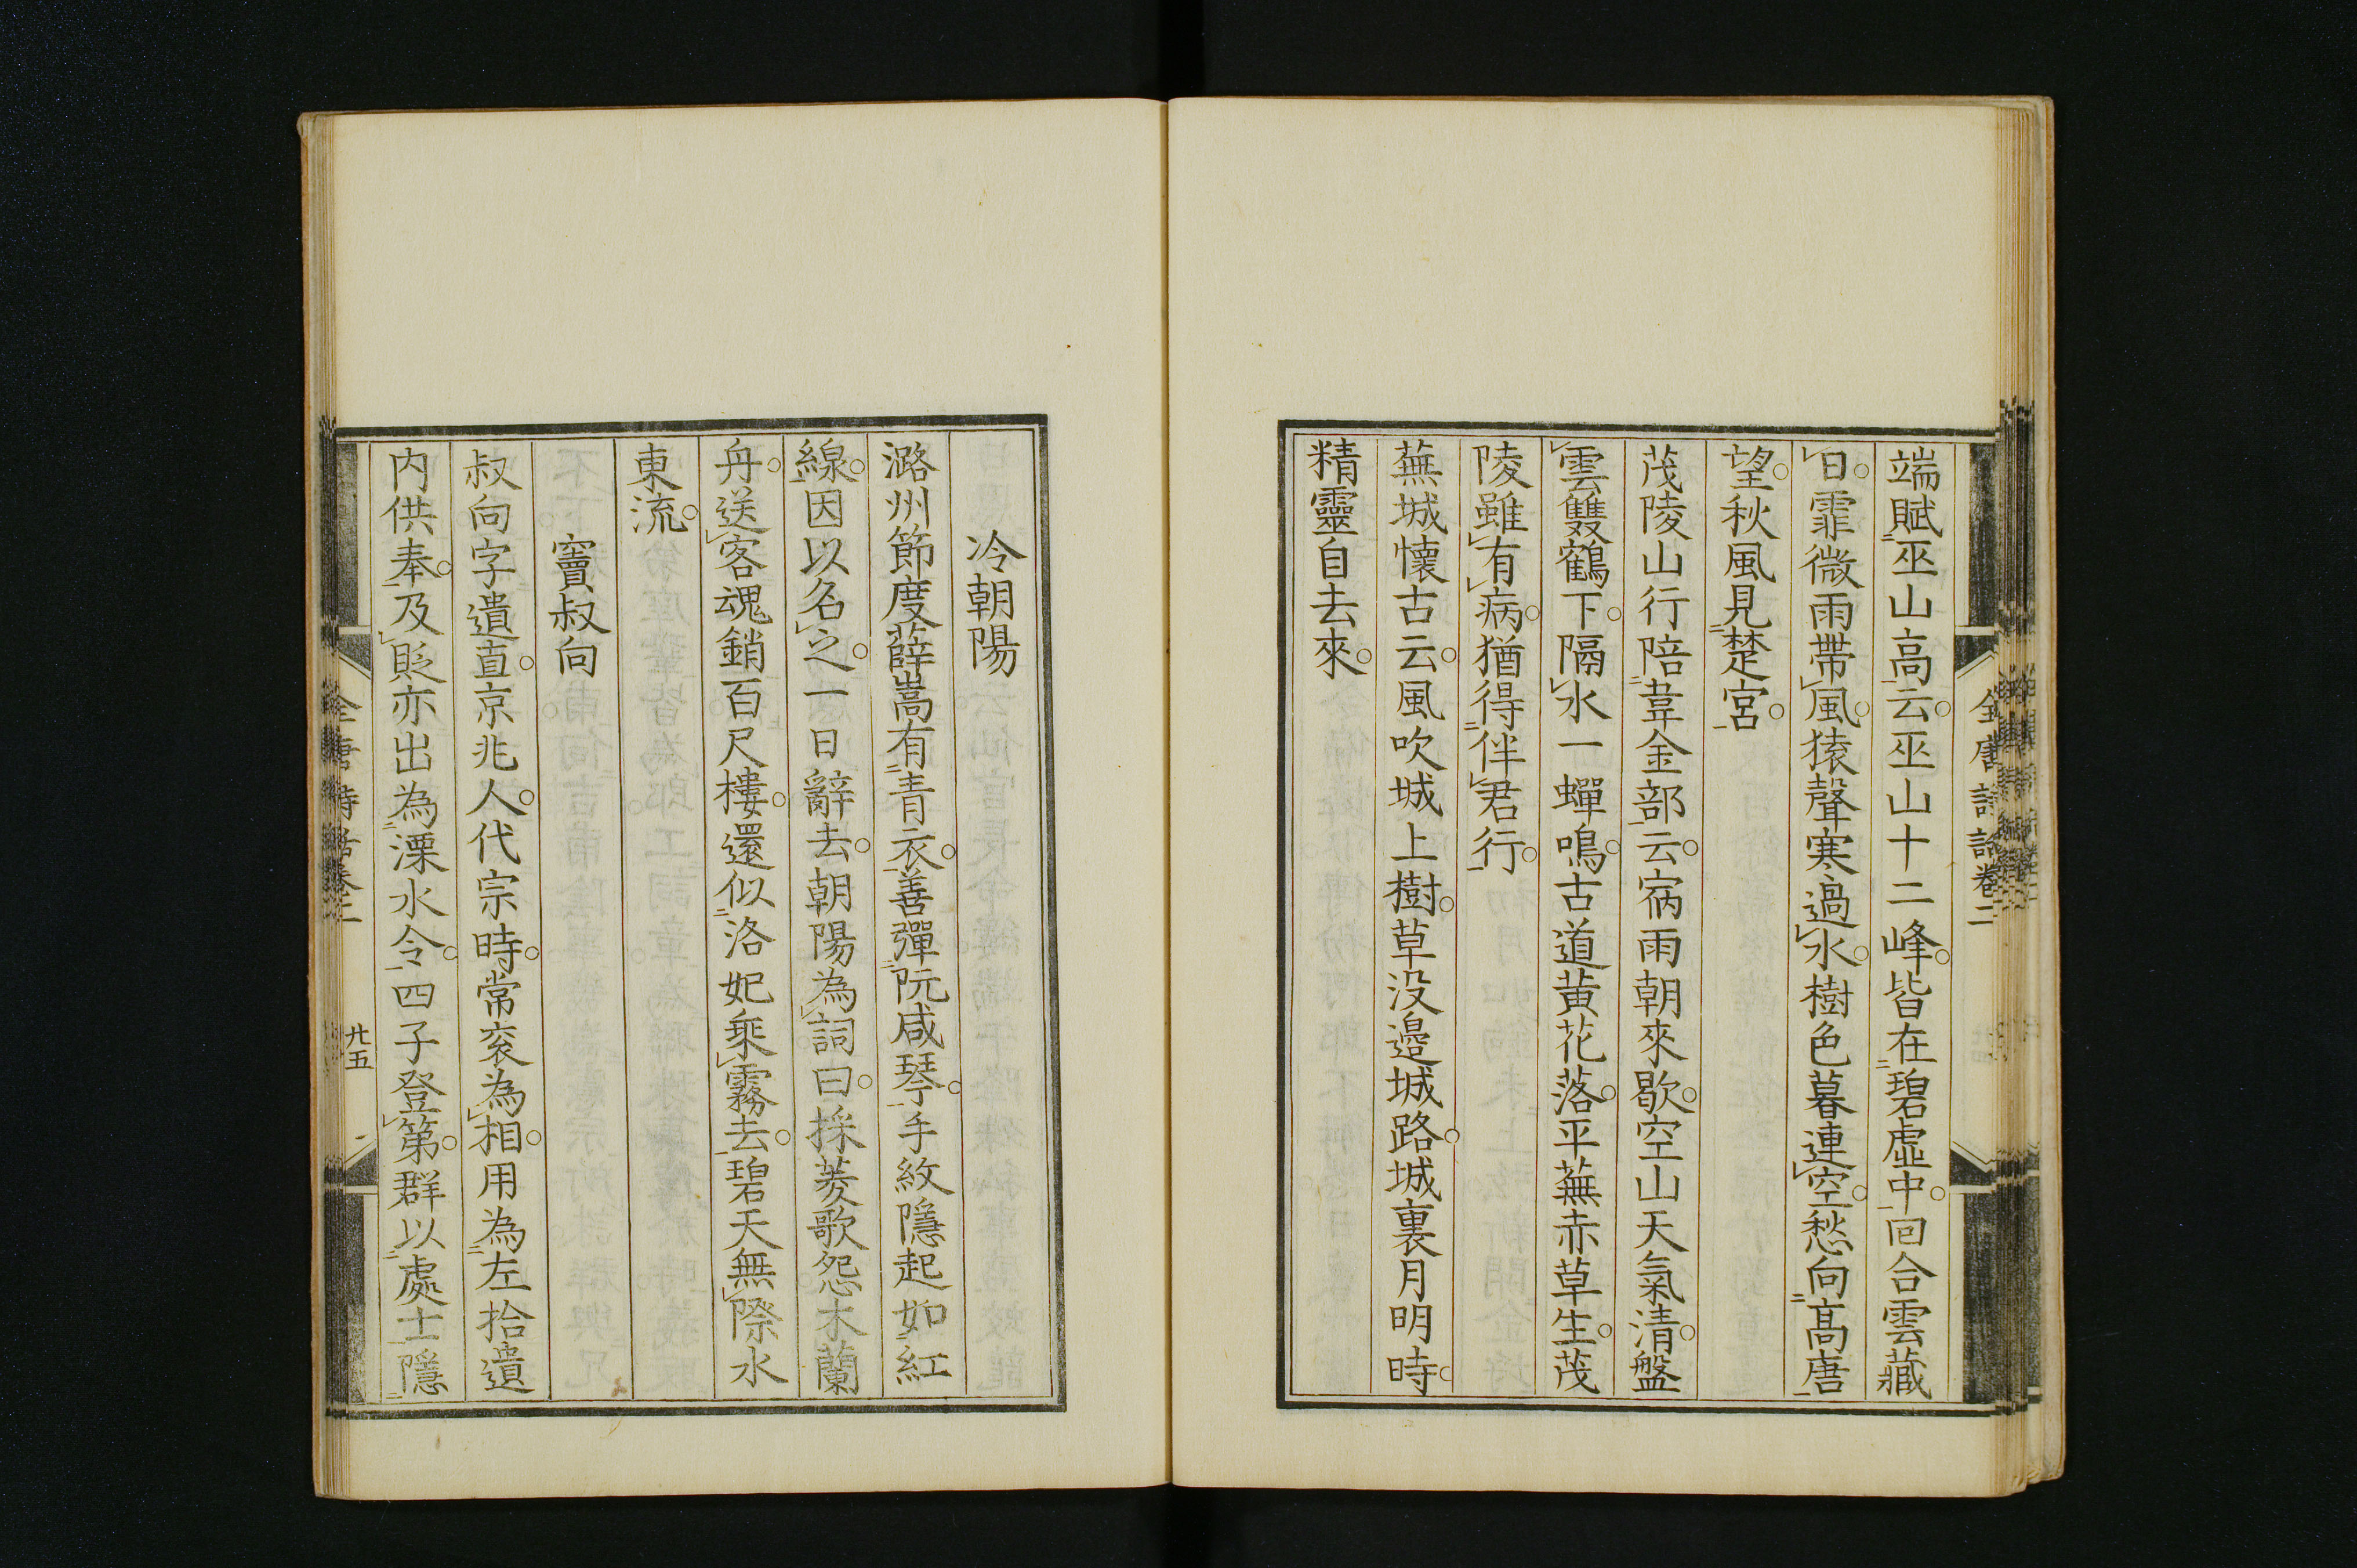 全唐詩話卷二
端賦巫山高云巫山十二峰皆在碧虛中回合雲藏
日霏微雨帶風猿聲寒過水樹色暮連空愁向高唐
望秋風見楚宮
茂陵山行陪韋金部云宿雨朝來歇空山天氣清盤
雲雙鶴下隔水一蟬鳴古道黃花落平蕪赤草生茂
陵雖有病猶得伴君行
蕪城懷古云風吹城上樹草沒邊城路城裏月明時
精靈自去來
冷朝陽
潞州節度薛嵩有青衣善彈阮咸琴手紋隱起如紅
線因以名之一日辭去朝陽為詞曰採菱歌怨木蘭
舟送客魂銷百尺樓還似洛妃乘霧去碧天無際水
東流
竇叔向
叔向字遺直京兆人代宗時常袞為相用為左拾遺
内供奉及貶亦出為溧水令四子登第群以處士隱
全唐詩話卷二
廿五